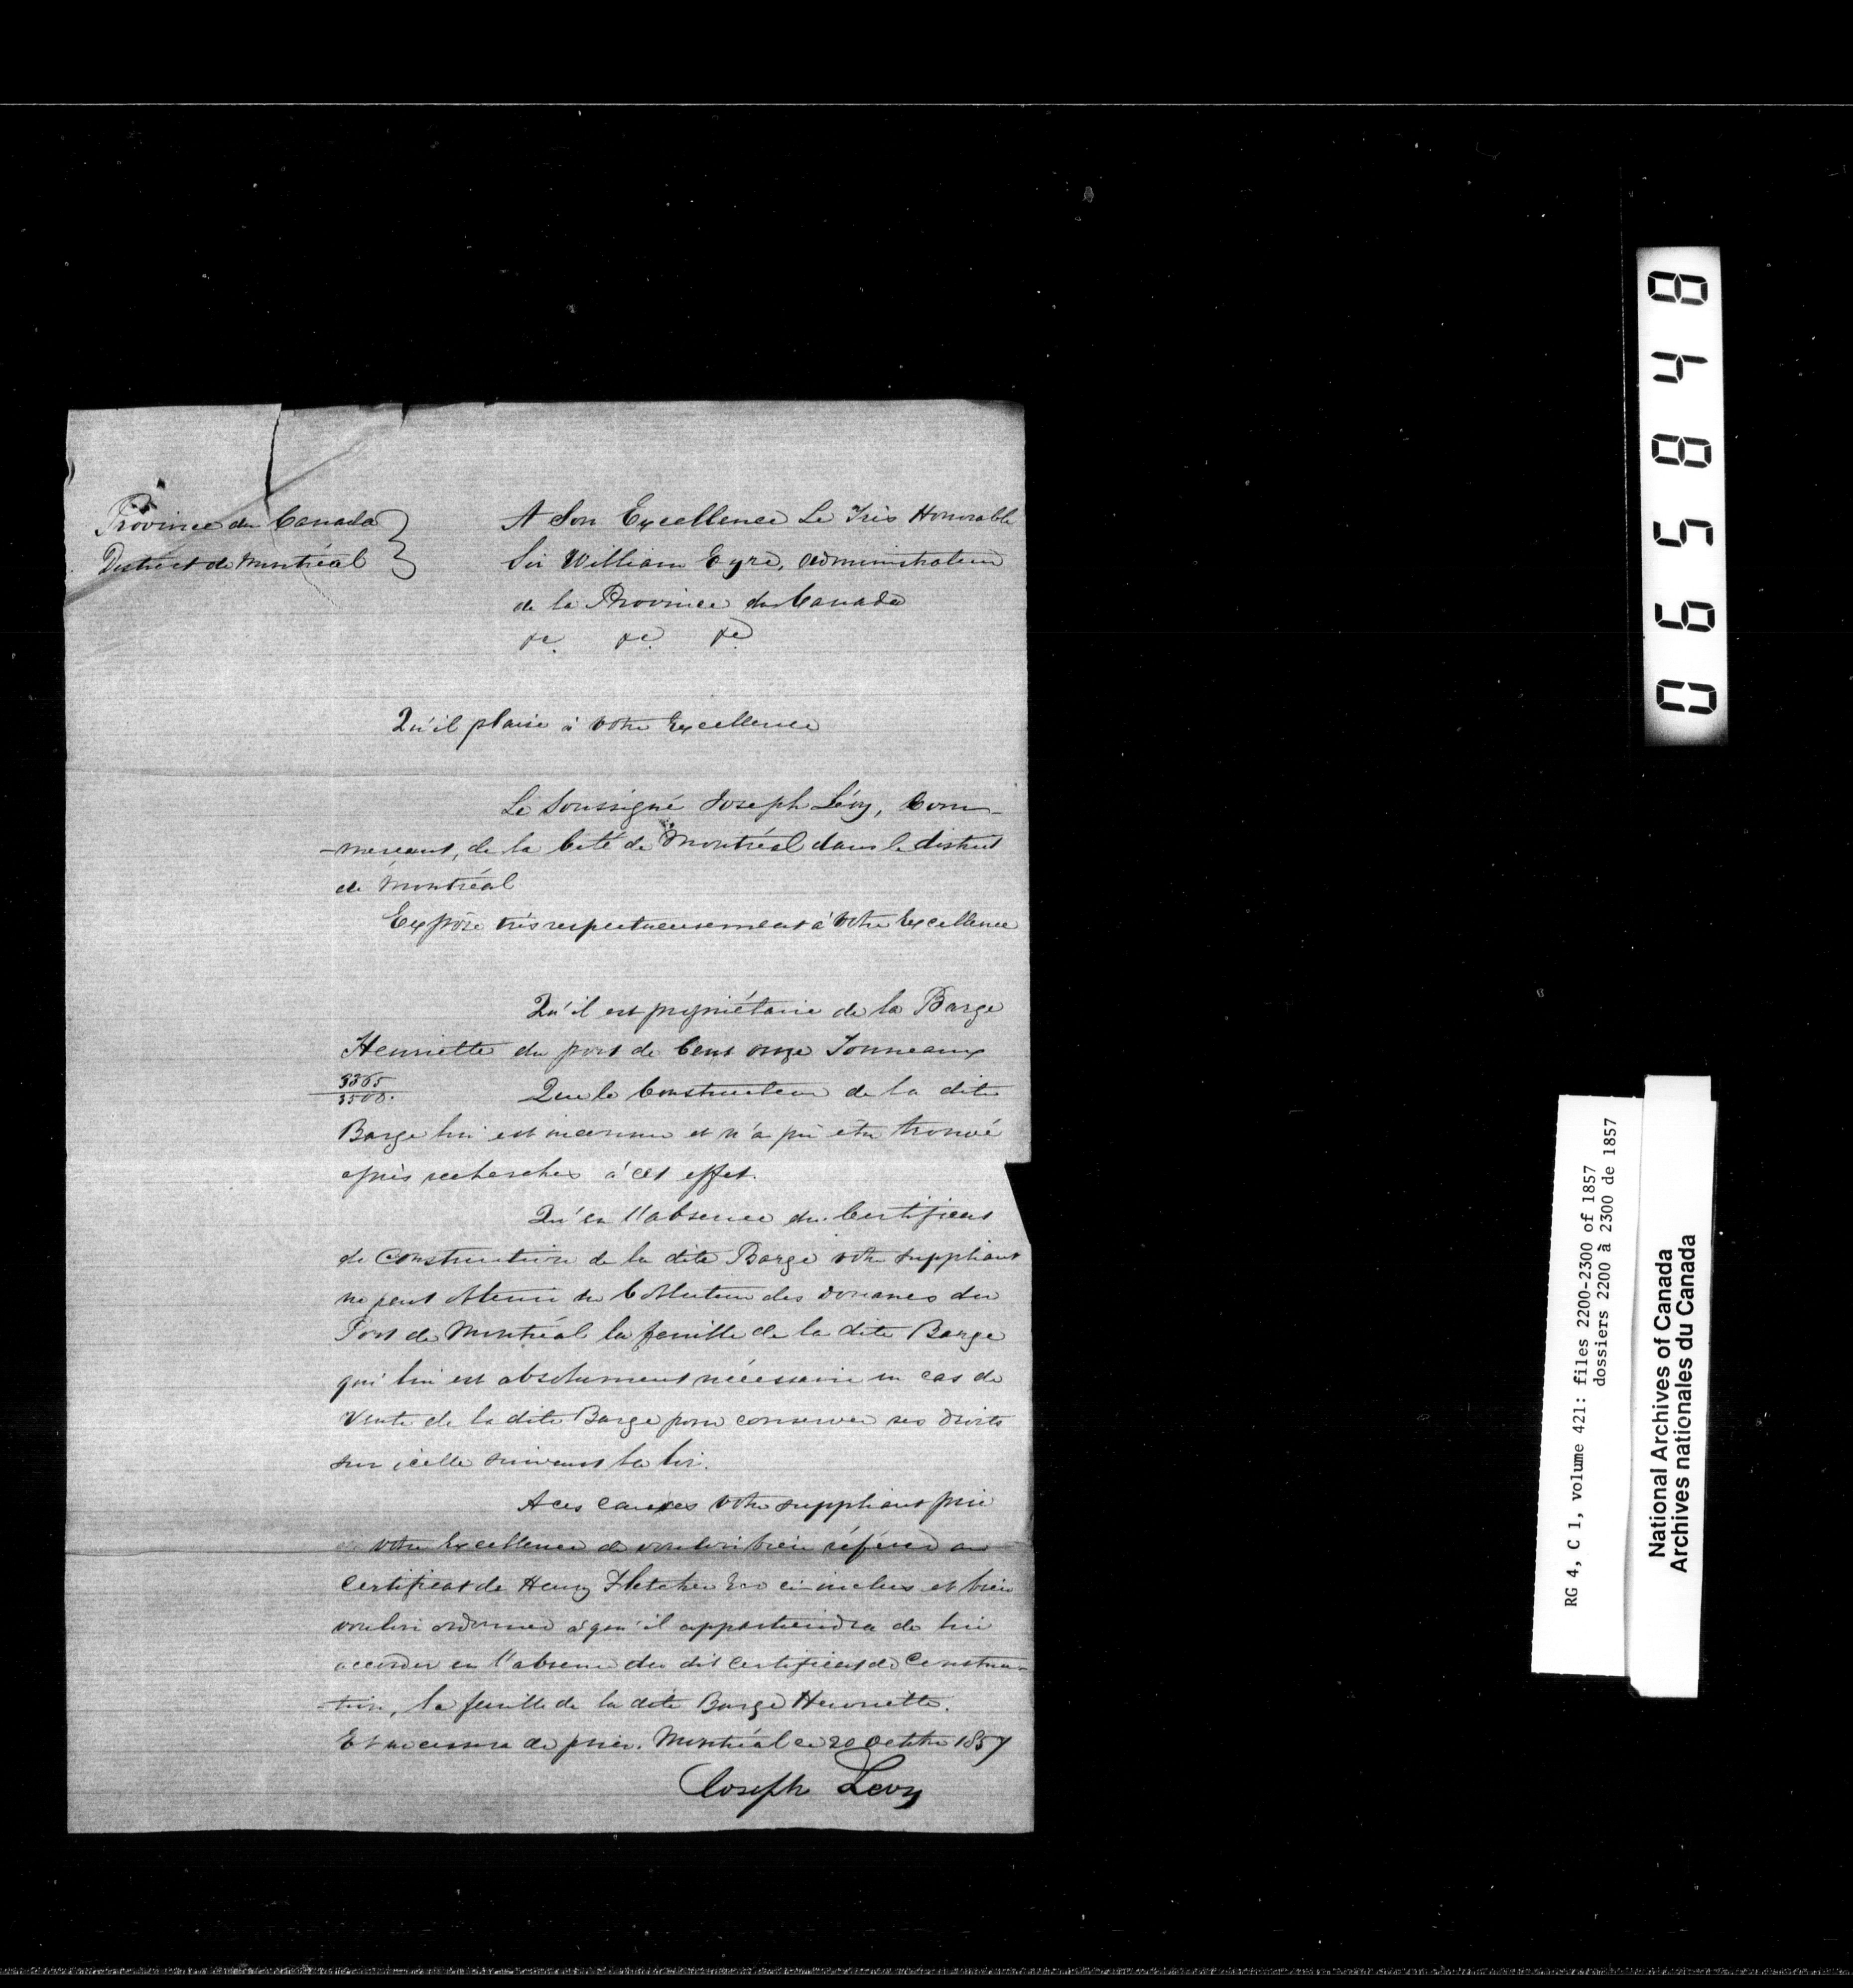 Province du Canada
District de Montréal
A Son Excellence Le Très Honorable
Sir William Eyre, administrateur
de la Province du Canada
&c. &c. &c.
Qu'il plaise à votre Excellence
Le Soussigné Joseph Lévy, Com-
-mercant, de la Cité de Montréal dans le district
de Montréal
Expose très respectueusement à votre Excellence
Qu'il est propriétaire de la Barge
Henriette du port de Cent onze Tonneaux
3365
3500.
Que le Constructeur de la dite
Barge lui est inconnu et n'a pu être trouvé
après recherches à cet effet.
Qu'en l'absence du Certificat
de Construction de la dite Barge votre suppliant
ne peut obtenir du Collecteur des douanes du
Port de Montréal la feuille de la dite Barge
qui lui est absolument nécessaire en cas de
Vente de la dite Barge pour conserver ses droits
sur icelle suivant la loi.
A ces causes votre suppliant prie
votre Excellence de vouloir bien référer au
Certificat de Henry Fletcher Ecr ci-inclus et bien
vouloir ordonner à qui il appartiendra de lui
accorder en l'absence du dit certificat de Construc-
-tion, la feuille de la dite Barge Henriette.
Et ne cessera de prier. Montréal ce 20 octobre 1857
Joseph Levy
065848
RG 4, C 1, volume 421: files 2200-2300 of 1857
dossiers 2200 à 2300 de 1857
National Archives of Canada
Archives nationales du Canada